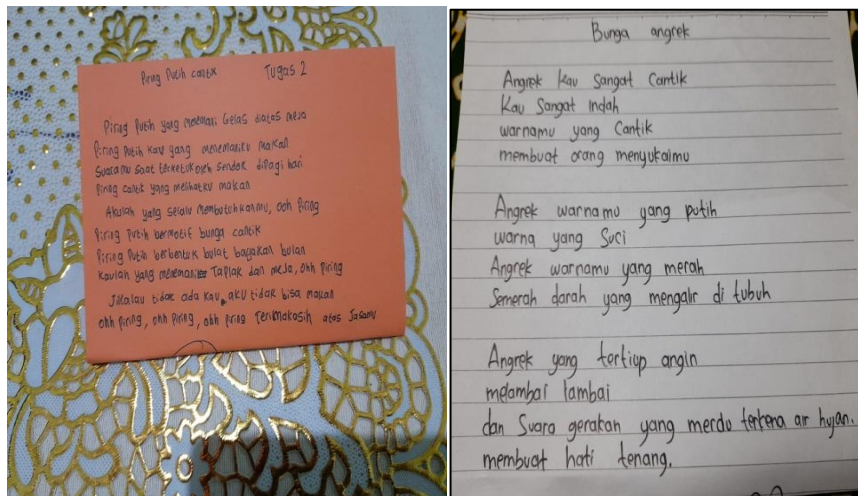 Piring Putih cantik Tugas 2
Piring Putih yang menemani Gelas diatas meja
Piring Putih Kau yang menemaniku makan
Suara mu saat terketuk oleh sendok dipagi hari
Piring cantik yang melihatku makan
Akulah yang selalu membutuhkanmu, ooh Piring
Piring Putih bermotif bunga cantik
Piring Putih berbentuk bulat bagaikan bulan
Kaulah yang menemani Taplak dan meja, ohh Piring
Jikalau tidak ada kau, aku tidak bisa makan
ohh Piring, ohh Piring, ohh Piring Terimakasih atas Jasamu
Bunga angrek
Angrek kau sangat Cantik
Kau Sangat Indah
warnamu yang Cantik
membuat orang menyukaimu
Angrek warnamu yang putih
warna yang Suci
Angrek warnamu yang merah
Semerah darah yang mengalir di tubuh
Angrek yang tertiup angin
melambai lambai
dan Suara gerakan yang merdu terkena air hujan.
membuat hati tenang.